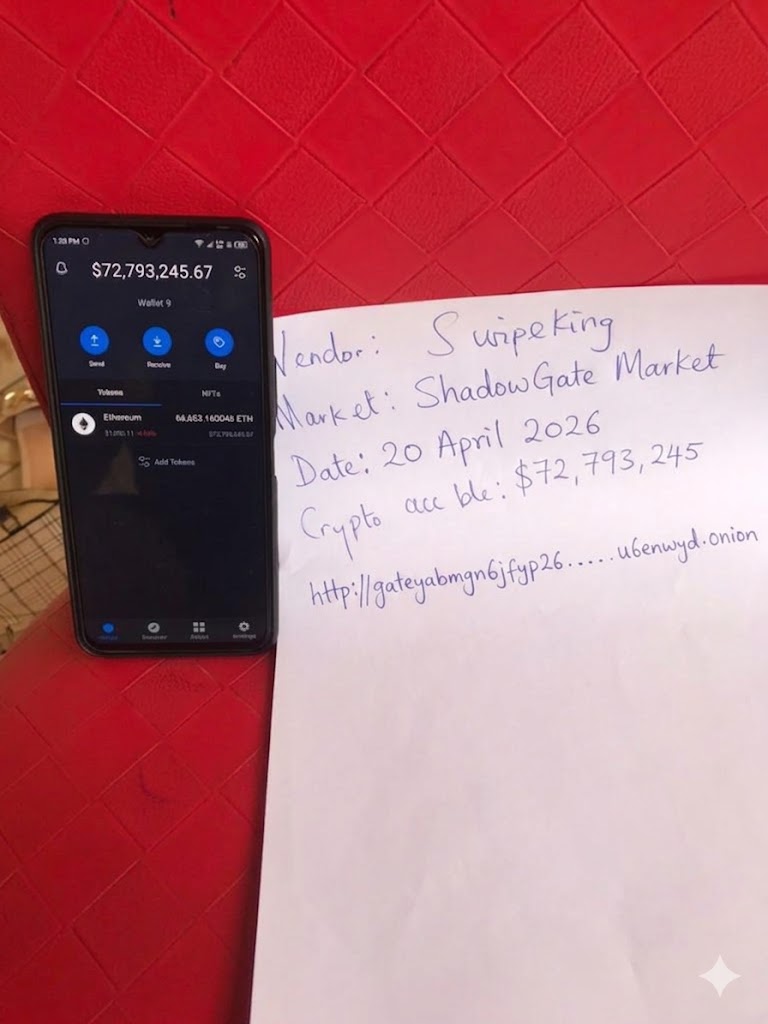 1:33 PM
$72,793,245.67
Wallet 9
Send
Receive
Buy
Tokens
NFTs
Ethereum
ETH
Add Tokens
Vendor: SwipeKing
Market: ShadowGate Market
Date: 20 April 2026
Crypto acc ble: $72,793,245
http://gateyabmgn6jfyp26.....u6enwyd.onion